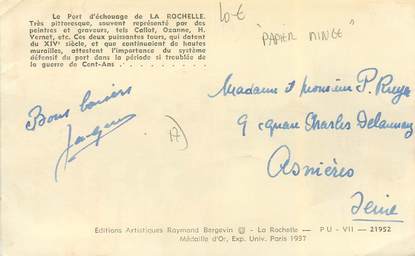 Le Port d'échouage de LA ROCHELLE.
Très pittoresque, souvent représenté par des
peintres et graveurs, tels Callot, Ozanne, H.
Vernet, etc. Ces deux puissantes tours, qui datent
du XIVe siècle, et que continuaient de hautes
murailles, attestent l'importance du système
défensif du port dans la période si troublée de
la guerre de Cent-Ans...
10 €
"PAPIER MINCE"
Bons baisers
Jacques
17
Madame et monsieur P.
9 quai Charles Delaunay
Asnières
Seine
Editions Artistiques Raymond Bergevin - La Rochelle — PU - VII — 21952
Médaille d'Or, Exp. Univ. Paris 1937